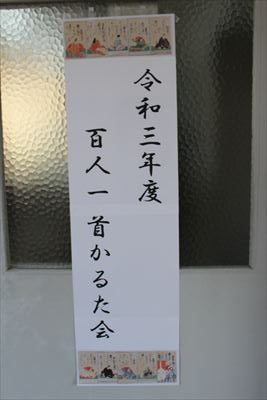 令和三年度
百人一首かるた会